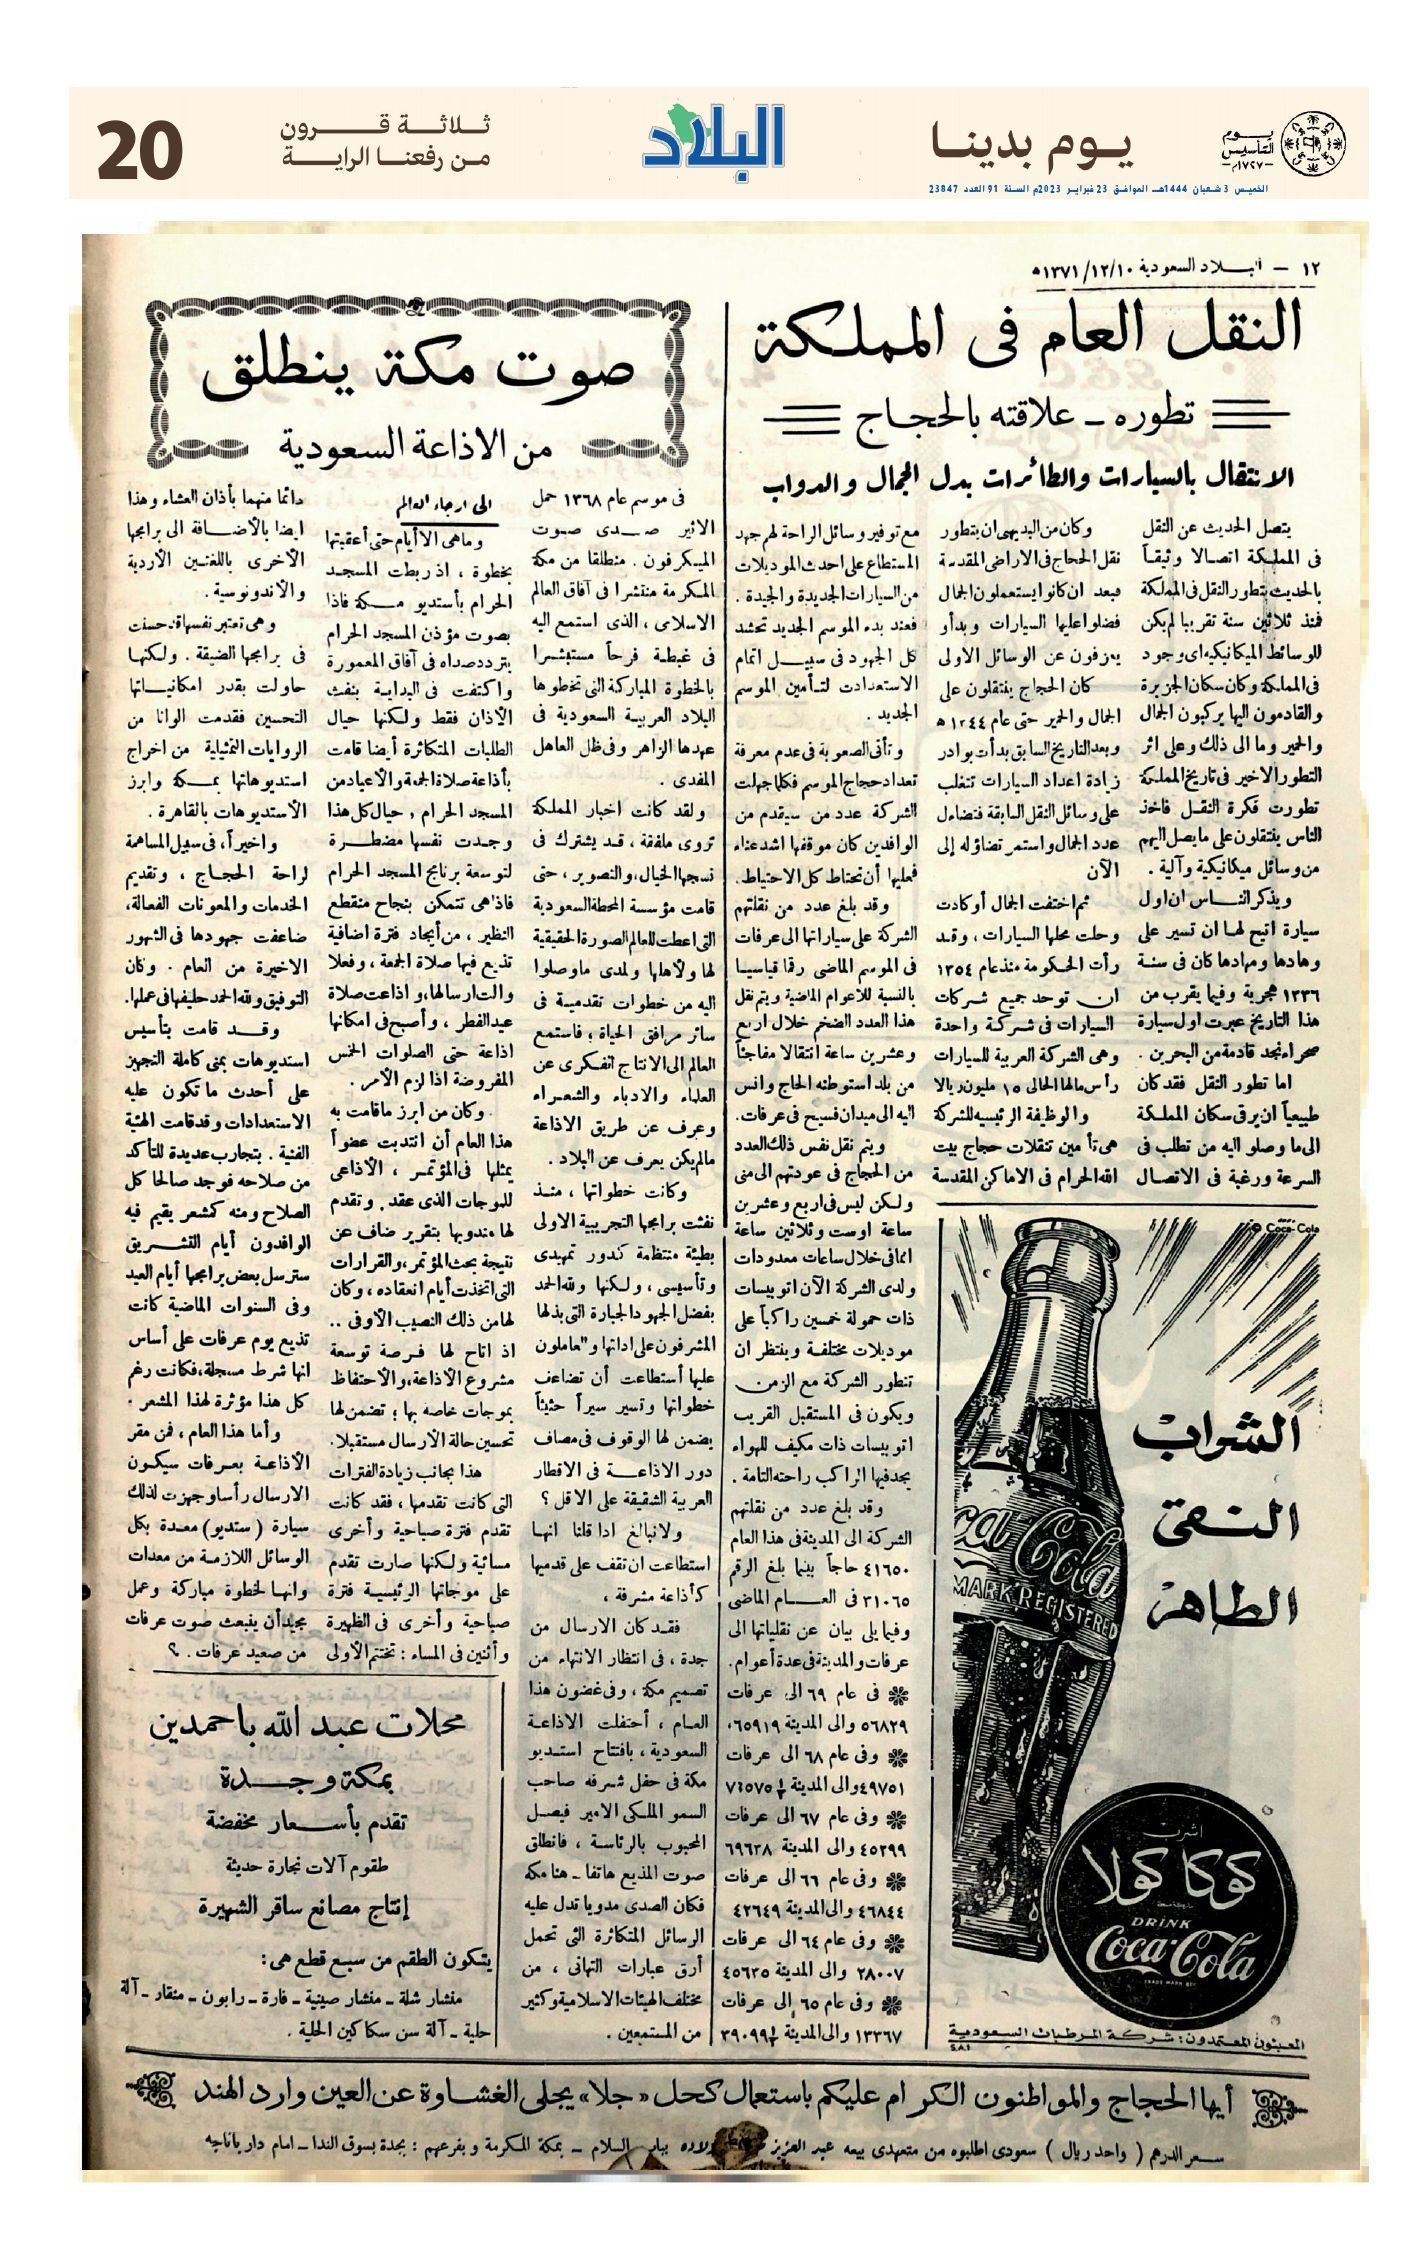 يوم التأسيس
١٧٢٧م
يوم بدينا
الخميس 3 شعبان 1444هـ الموافق 23 فبراير 2023م السنة 91 العدد 23847
البلاد
ثلاثة قرون
من رفعنا الراية
20
١٢ – البلاد السعودية ١٣٧١/١٢/١٠ ه
النقل العام فى المملكة
تطوره – علاقته بالحجاج
الانتقال بالسيارات والطائرات بدل الجمال والدواب
يتصل الحديث عن النقل
فى المملكة اتصالا وثيقاً
بالحديث بتطور النقل فى المملكة
فمنذ ثلاثين سنة تقريبا لم يكن
للوسائط الميكانيكيه اى وجود
فى المملكة وكان سكان الجزيرة
والقادمون اليها يركبون الجمال
والحمير وما الى ذلك وعلى اثر
التطور الاخير فى تاريخ المملكة
تطورت فكرة النقل فاخذ
الناس ينتقلون على ما يصل اليهم
من وسائل ميكانيكية وآلية .
ويذكر الناس ان اول
سيارة اتيح لها ان تسير على
وهادها ومهادها كان فى سنة
١٣٣٦ هجرية وفيما يقرب من
هذا التاريخ عبرت اول سيارة
صحراء نجد قادمة من البحرين .
اما تطور النقل فقد كان
طبيعياً ان يرقى سكان المملكة
الى ما وصلو اليه من تطلب فى
السرعة ورغبة فى الاتصال
وكان من البديهى ان يتطور
نقل الحجاج فى الاراضى المقدسة
فبعد ان كانوا يستعملون الجمال
فضلوا عليها السيارات وبدأو
يعزفون عن الوسائل الاولى
كان الحجاج ينتقلون على
الجمال والحمير حتى عام ١٣٤٤ ه
وبعد التاريخ السابق بدأت بوادر
زيادة اعداد السيارات تتغلب
على وسائل النقل السابقة فتضاءل
عدد الجمال واستمر تضاؤله إلى
الآن
ثم اختفت الجمال أو كادت
وحلت محلها السيارات ، وقد
رأت الحكومة منذ عام ١٣٥٤
ان توحد جميع شركات
السيارات فى شركة واحدة
وهى الشركة العربية للسيارات
رأس مالها الحالى ١٥ مليون ريالا
والوظيفة الرئيسيه للشركة
هى تأمين تنقلات حجاج بيت
الله الحرام فى الاماكن المقدسة
مع توفير وسائل الراحة لهم جهد
المستطاع على احدث الموديلات
من السيارات الجديدة والجيدة .
فعند بدء الموسم الجديد تحشد
كل الجهود فى سبيل اتمام
الاستعدادت لتأمين الموسم
الجديد .
وتأتى الصعوبة فى عدم معرفة
تعداد حجاج الموسم فكلما جهلت
الشركة عدد من سيقدم من
الوافدين كان موقفها اشد عناء
فعليها أن تحتاط كل الاحتياط .
وقد بلغ عدد من نقلتهم
الشركة على سياراتها الى عرفات
فى الموسم الماضى رقما قياسيا
بالنسبة للاعوام الماضية ويتم نقل
هذا العدد الضخم خلال اربع
وعشرين ساعة انتقالا مفاجئاً
من بلد استوطنه الحاج وانس
اليه الى ميدان فسيح فى عرفات .
ويتم نقل نفس ذلك العدد
من الحجاج فى عودتهم الى منى
ولكن ليس فى اربع وعشرين
ساعة او ست وثلاثين ساعة
انما فى خلال ساعات معدودات
ولدى الشركة الآن اتوبيسات
ذات حمولة خمسين راكباً على
موديلات مختلفة وينتظر ان
تتطور الشركة مع الزمن
ويكون فى المستقبل القريب
اتوبيسات ذات مكيف للهواء
يجد فيها الراكب راحته التامة .
وقد بلغ عدد من نقلتهم
الشركة الى المدينة فى هذا العام
٤١٦٥٠ حاجاً بينما بلغ الرقم
٣١٠٦٥ فى العام الماضى
وفيما يلى بيان عن نقلياتها الى
عرفات والمدينة فى عدة أعوام .
فى عام ٦٩ الى عرفات
٥٦٨٢٩ والى المدينة ٦٥٩١٩،
وفى عام ٦٨ الى عرفات
٤٩٧٥١ والى المدينة
وفى عام ٦٧ الى عرفات
٤٥٢٩٩ والى المدينة ٦٩٦٣٨
وفى عام ٦٦ الى عرفات
٤٦٨٤٤ والى المدينة ٤٢٦٤٩
وفى عام ٦٤ الى عرفات
٢٨٠٠٧ والى المدينة ٤٥٦٣٥
وفى عام ٦٥ الى عرفات
١٣٣٦٧ والى المدينة
© Coca-Cola
الشراب
النقى
الطاهر
Coca Cola
MARK REGISTERED
اشرب
كوكا كولا
DRINK
Coca-Cola
TRADE MARK REG
المعبئون المعتمدون: شركة المرطبات السعودية
صوت مكة ينطلق
من الاذاعة السعودية
فى موسم عام ١٣٦٨ حمل
الاثير صدى صوت
الميكرفون . منطلقا من مكة
المكرمة منتشرا فى آفاق العالم
الاسلامى ، الذى استمع اليه
فى غبطة فرحاً مستبشرا
بالخطوة المباركة التى تخطوها
البلاد العربية السعودية فى
عهدها الزاهر وفى ظل العاهل
المفدى .
ولقد كانت اخبار المملكة
تروى ملفقة ، قد يشترك فى
نسجها الخيال ، والتصوير ، حتى
قامت مؤسسة المحطة السعودية
التى اعطت للعالم الصورة الحقيقية
لها ولأهلها ولمدى ما وصلوا
اليه من خطوات تقدمية فى
سائر مرافق الحياة ؛ فاستمع
العالم الى الانتاج الفكرى عن
العلماء والادباء والشعراء
وعرف عن طريق الاذاعة
ما لم يكن يعرف عن البلاد .
وكانت خطواتها ، منذ
نفثت برامجها التجريبية الاولى
بطيئة منتظمة كدور تمهيدى
وتأسيسى ، ولكنها ولله الحمد
بفضل الجهود الجبارة التى بذلها
المشرفون على اداتها والعاملون
عليها أستطاعت أن تضاعف
خطواتها وتسير سيراً حثيثاً
يضمن لها الوقوف فى مصاف
دور الاذاعة فى الاقطار
العربية الشقيقة على الاقل ؟
ولا نبالغ اذا قلنا انها
استطاعت ان تقف على قدميها
كأذاعة مشرفة ،
فقد كان الارسال من
جدة ، فى انتظار الانتهاء من
تصميم مكة ، وفى غضون هذا
العام ، أحتفلت الاذاعة
السعودية ، بافتتاح استديو
مكة فى حفل شرفه صاحب
السمو الملكى الامير فيصل
المحبوب بالرئاسة ، فانطلق
صوت المذيع هاتفا – هنا مكة
فكان الصدى مدويا تدل عليه
الرسائل المتكاثرة التى تحمل
أرق عبارات التهانى ، من
مختلف الهيئات الاسلامية وكثير
من المستمعين .
الى ارجاء العالم
وما هى الا أيام حتى أعقبتها
بخطوة ، اذ ربطت المسجد
الحرام بأستديو مكة فاذا
بصوت مؤذن المسجد الحرام
يتردد صداه فى آفاق المعمورة
واكتفت فى البداية بنفث
الأذان فقط ولكنها حيال
الطلبات المتكاثرة أيضا قامت
بأذاعة صلاة الجمعة والأعياد من
المسجد الحرام , حيال كل هذا
وجدت نفسها مضطرة
لتوسعة برنامج المسجد الحرام
فاذا هى تتمكن بنجاح منقطع
النظير ، من أيجاد فترة اضافية
تذيع فيها صلاة الجمعة ، وفعلا
والت ارسالها ، و اذاعت صلاة
عيد الفطر ، وأصبح فى امكانها
اذاعة حتى الصلوات الخمس
المفروضة اذا لزم الأمر .
وكان من ابرز ما قامت به
هذا العام أن انتدبت عضواً
يمثلها فى المؤتمر ، الأذاعى
للموجات الذى عقد . وتقدم
لها مندوبها بتقرير ضاف عن
نتيجة بحث المؤتمر ، والقرارات
التى اتخذت أيام انعقاده ، وكان
لها من ذلك النصيب الأوفى ..
اذ اتاح لها فرصة توسعة
مشروع الأذاعة ، والأحتفاظ
بموجات خاصه بها ؛ تضمن لها
تحسين حالة الأرسال مستقبلا .
هذا بجانب زيادة الفترات
التى كانت تقدمها ، فقد كانت
تقدم فترة صباحية وأخرى
مسائية ولكنها صارت تقدم
على موجاتها الرئيسية فترة
صباحية وأخرى فى الظهيرة
وأثنين فى المساء : تختتم الأولى
دائما منهما بأذان العشاء وهذا
ايضا بالأضافة الى برامجها
الأخرى باللغتين الأردية
والأندونوسية .
وهى تعتبر نفسها قد حسنت
فى برامجها الضيقة . ولكنها
حاولت بقدر امكانياتها
التحسين فقدمت الوانا من
الروايات التمثيلية من اخراج
استديوهاتها بمكة وابرز
الأستديوهات بالقاهرة .
واخيراً ، فى سبيل المساهمة
لراحة الحجاج ، وتقديم
الخدمات والمعونات الفعالة ،
ضاعفت جهودها فى الشهور
الاخيرة من العام . وكان
التوفيق ولله الحمد حليفها فى عملها .
وقد قامت بتأسيس
استديوهات بمنى كاملة التجهيز
على أحدث ما تكون عليه
الاستعدادات وقد قامت الهيئة
الفنية . بتجارب عديدة للتأكد
من صلاحه فوجد صالحا كل
الصلاح ومنه كمشعر يقيم فيه
الوافدون أيام التشريق
سترسل بعض برامجها أيام العيد
وفى السنوات الماضية كانت
تذيع يوم عرفات على أساس
انها شرط مسجلة ، فكانت رغم
كل هذا مؤثرة لهذا المشعر .
وأما هذا العام ، فمن مقر
الأذاعة بعرفات سيكون
الارسال رأسا وجهزت لذلك
سيارة ( ستديو ) معدة بكل
الوسائل اللازمة من معدات
وانها لخطوة مباركة وعمل
مجيد أن ينبعث صوت عرفات
من صعيد عرفات . ؟
محلات عبد الله باحمدين
بمكة وجدة
تقدم بأسعار مخفضة
طقوم آلات نجارة حديثة
إنتاج مصانع ساقر الشهيرة
يتكون الطقم من سبع قطع هى :
منشار شلة – منشار صينية – فارة – رابون – منقار – آلة
حلية – آلة سن سكاكين الحلية .
أيها الحجاج والمواطنون الكرام عليكم باستعمال كحل « جلا » يجلى الغشاوة عن العين وارد الهند
سعر الدرهم ( واحد ريال ) سعودى اطلبوه من متعهدى بيعه عبد العزيز بباب السلام – بمكة المكرمة و بفرعهم : بجدة بسوق الندا – امام دار باناجه